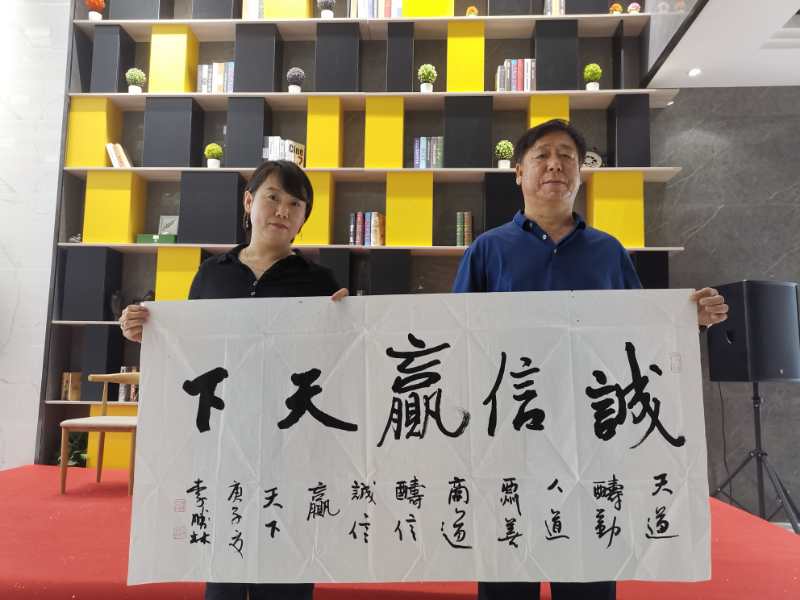 誠信贏天下
天道
醻勤
人道
善
商道
醻信
誠信
贏
天下
庚子
李勝林